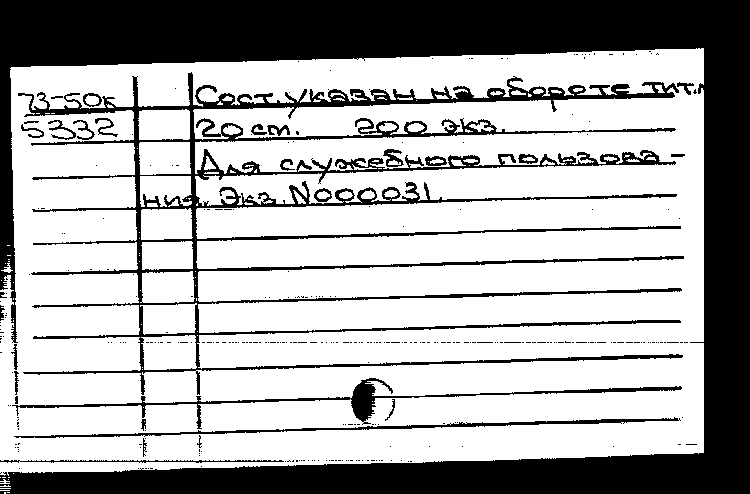 73-50к Сост. указан на обороте тит.л
5332 20 см. 200 экз.
Для служебного пользова-
ния. Экз. N000031.